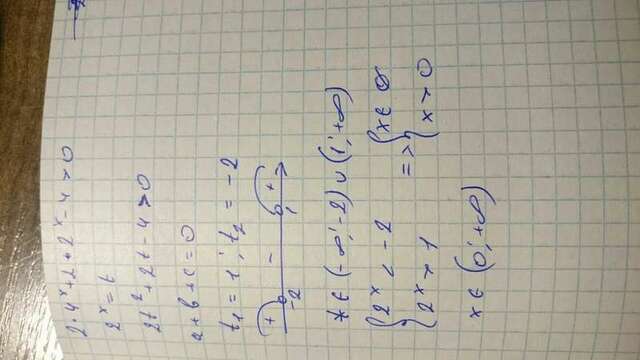 2·4ˣ+2·2ˣ-4>0
2ˣ=t
2t²+2t-4>0
a+b+c=0
t₁=1; t₂=-2
+ - +
-2 1
t∈(-∞;-2)∪(1;+∞)
{2ˣ<-2 {x∈∅
{2ˣ>1 => {x>0
x∈(0;+∞)